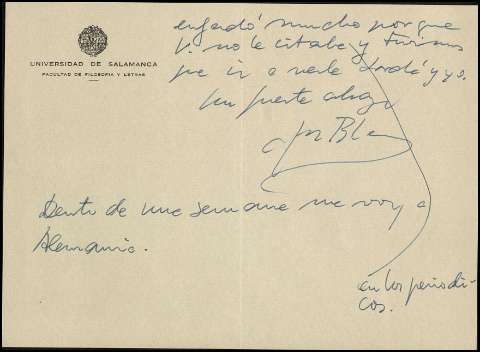 UNIVERSIDAD DE SALAMANCA
FACULTAD DE FILOSOFIA Y LETRAS
enfadó mucho porque
V. no le citaba y tuvimos
que ir a verle y yo.
Un fuerte abrazo
Dentro de una semana me voy a
Alemania.
en los periodi-
cos.